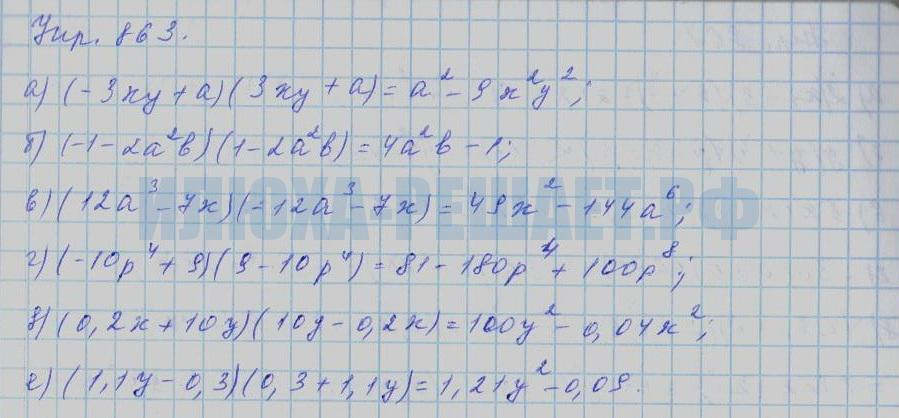 Упр. 863.
а) (-3xy + a)(3xy + a) = a² - 9x²y²;
б) (-1 - 2a²b)(1 - 2a²b) = 4a²b - 1;
в) (12a³ - 7x)(-12a³ - 7x) = 49x² - 144a⁶;
ИЛЮХА РЕШАЕТ.РФ
г) (-10p⁴ + 9)(9 - 10p⁴) = 81 - 180p⁴ + 100p⁸;
д) (0,2x + 10y)(10y - 0,2x) = 100y² - 0,04x²;
е) (1,1y - 0,3)(0,3 + 1,1y) = 1,21y² - 0,09.